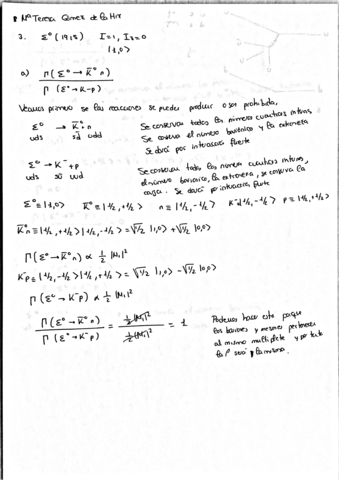 Mª Teresa Gómez de la Hir
3. Σ⁰ (1915) I=1, I₃=0
|1,0>
a) Γ(Σ⁰ → K̄⁰ n)
Γ(Σ⁰ → K⁻ p)
Veamos primero si las reacciones se pueden producir o son prohibida,
Σ⁰ → K̄⁰ n
uds sd̄ udd
Se conservan todos los números cuánticos internos,
Se conserva el número bariónico y la extrañeza
Se dará por interacción fuerte
Σ⁰ → K⁻ + p
uds sū uud
Se conservan todos los números cuánticos internos,
el número bariónico, la extrañeza, se conserva la
carga. Se dará por interacción fuerte
Σ⁰ ≡ |1,0> K̄⁰ ≡ |1/2,+1/2> n ≡ |1/2,-1/2> K⁻ ≡ |1/2,-1/2> p ≡ |1/2,+1/2>
K̄⁰ n ≡ |1/2,+1/2> |1/2,-1/2> = √1/2 |1,0> + √1/2 |0,0>
Γ(Σ⁰ → K̄⁰ n) ∝ 1/2 |M₁|²
K⁻p ≡ |1/2,-1/2> |1/2,+1/2> = √1/2 |1,0> - √1/2 |0,0>
Γ(Σ⁰ → K⁻ p) ∝ 1/2 |M₁|²
Γ(Σ⁰ → K̄⁰ n) / Γ(Σ⁰ → K⁻ p) = 1/2 |M₁|² / 1/2 |M₁|² = 1
Podemos hacer esto porque
los bariones y mesones pertenecen
al mismo multiplete y por tanto
la misma.